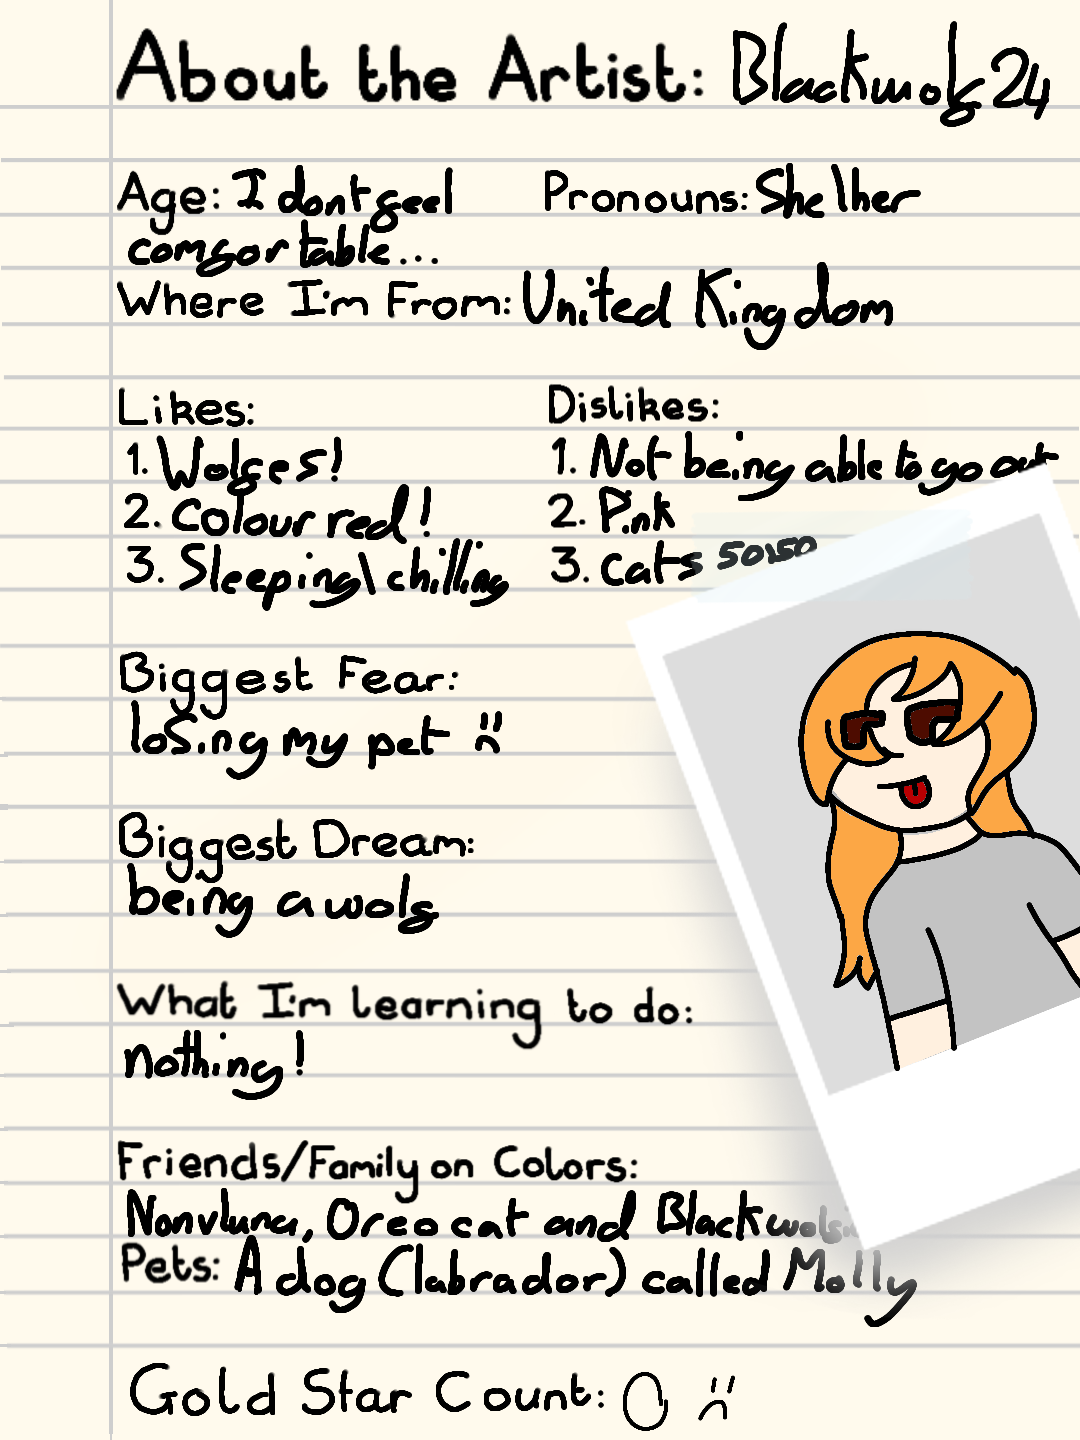 About the Artist: Blackwolf24
Age: I dont feel Pronouns: She\her
comfortable...
Where I'm From: United Kingdom
Likes: Dislikes:
1. Wolfes! 1. Not being able to go out
2. Colour red! 2. Pink
3. Sleeping\chilling 3. cats 50\50
Biggest Fear:
losing my pet
Biggest Dream:
being a wolf
What I'm learning to do:
nothing!
Friends/Family on Colors:
Nonvluna, Oreo cat and
Pets: A dog (labrador) called Molly
Gold Star Count: 0